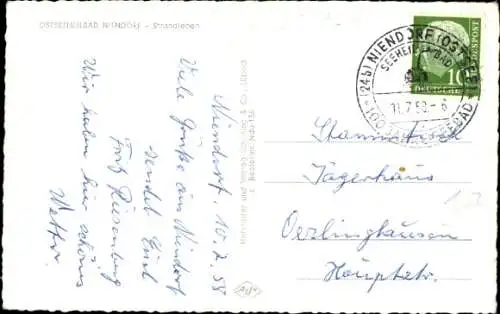 OSTSEEHEILBAD NIENDORF - Strandleben
Niendorf. 10.7.58
Viele Grüße aus Niendorf
sendet Euch
Fritz
Wir haben hier schönes
Wetter.
(24b) NIENDORF (OSTSEE)
SEEHEILBAD
11.7.58 - 6
100 JAHRE SEEBAD
DEUTSCHE BUNDESPOST
10
Stammtisch
Jägerhaus
Oerlinghausen
Hauptstr.